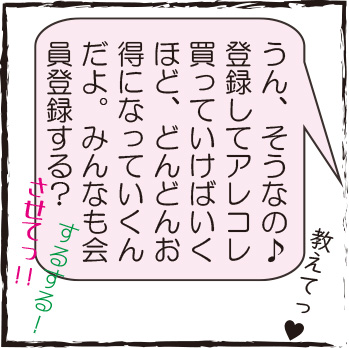 うん、そうなの♪
登録してアレコレ
買っていけばいく
ほど、どんどんお
得になっていくん
だよ。みんなも会
員登録する？
教えてっ♥
するする！
させてっ!!